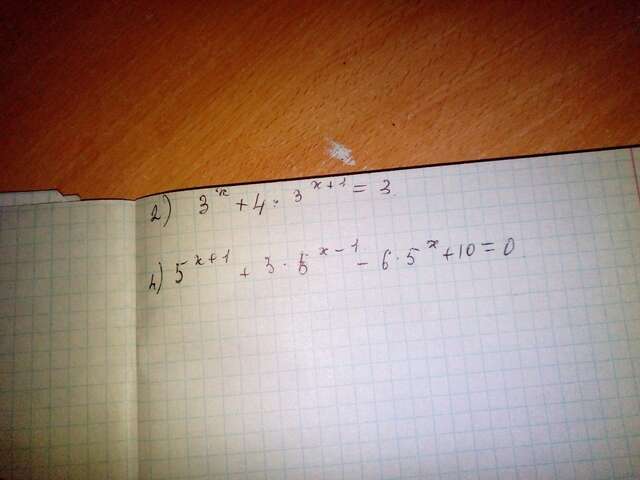 2) 3^x + 4 · 3^{x+1} = 3
4) 5^{x+1} + 3 · 5^{x-1} - 6 · 5^x + 10 = 0